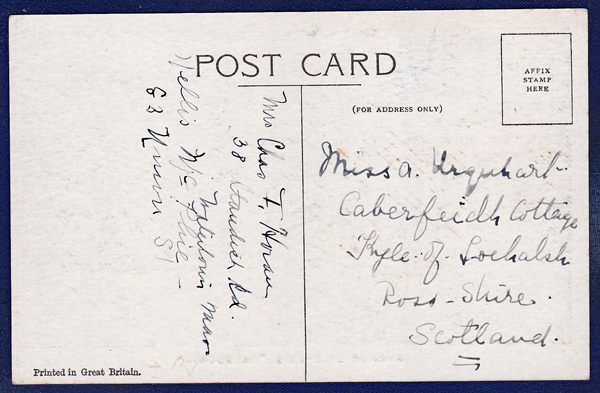 POST CARD
AFFIX
STAMP
HERE
(FOR ADDRESS ONLY)
Miss A. Urquhart
Caberfeidh Cottage
Kyle of Lochalsh
Ross-Shire.
Scotland.
Mrs Chas T. Horan
38 Standish Rd.
Watertown Mass
Nellie McPhie
63 Union St
Printed in Great Britain.